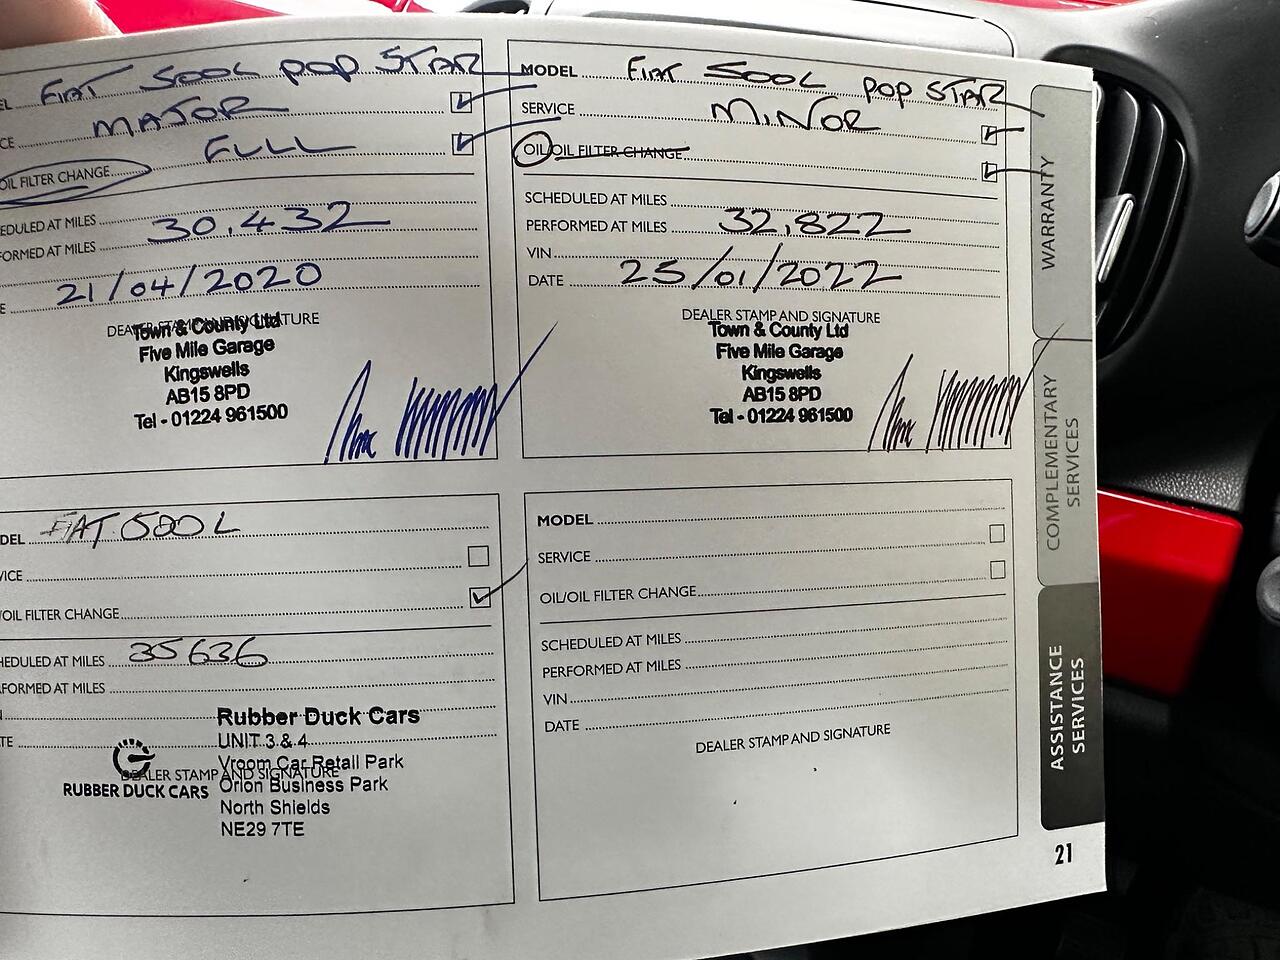 EL FIAT 500L POP STAR
CE MAJOR
FULL
OIL FILTER CHANGE
EDULED AT MILES
30.432
FORMED AT MILES
E 21/04/2020
DEALER STAMP AND SIGNATURE
Town & County Ltd
Five Mile Garage
Kingswells
AB15 8PD
Tel - 01224 961500
MODEL FIAT 500L POP STAR
SERVICE MINOR
OIL/OIL FILTER CHANGE
SCHEDULED AT MILES
PERFORMED AT MILES 32,822
VIN
DATE 25/01/2022
DEALER STAMP AND SIGNATURE
Town & County Ltd
Five Mile Garage
Kingswells
AB15 8PD
Tel - 01224 961500
DEL FIAT 500L
VICE
/OIL FILTER CHANGE
HEDULED AT MILES 35636
FORMED AT MILES
TE
DEALER STAMP AND SIGNATURE
RUBBER DUCK CARS
Rubber Duck Cars
UNIT 3 & 4
Vroom Car Retail Park
Orion Business Park
North Shields
NE29 7TE
MODEL
SERVICE
OIL/OIL FILTER CHANGE
SCHEDULED AT MILES
PERFORMED AT MILES
VIN
DATE
DEALER STAMP AND SIGNATURE
WARRANTY
COMPLEMENTARY
SERVICES
ASSISTANCE
SERVICES
21